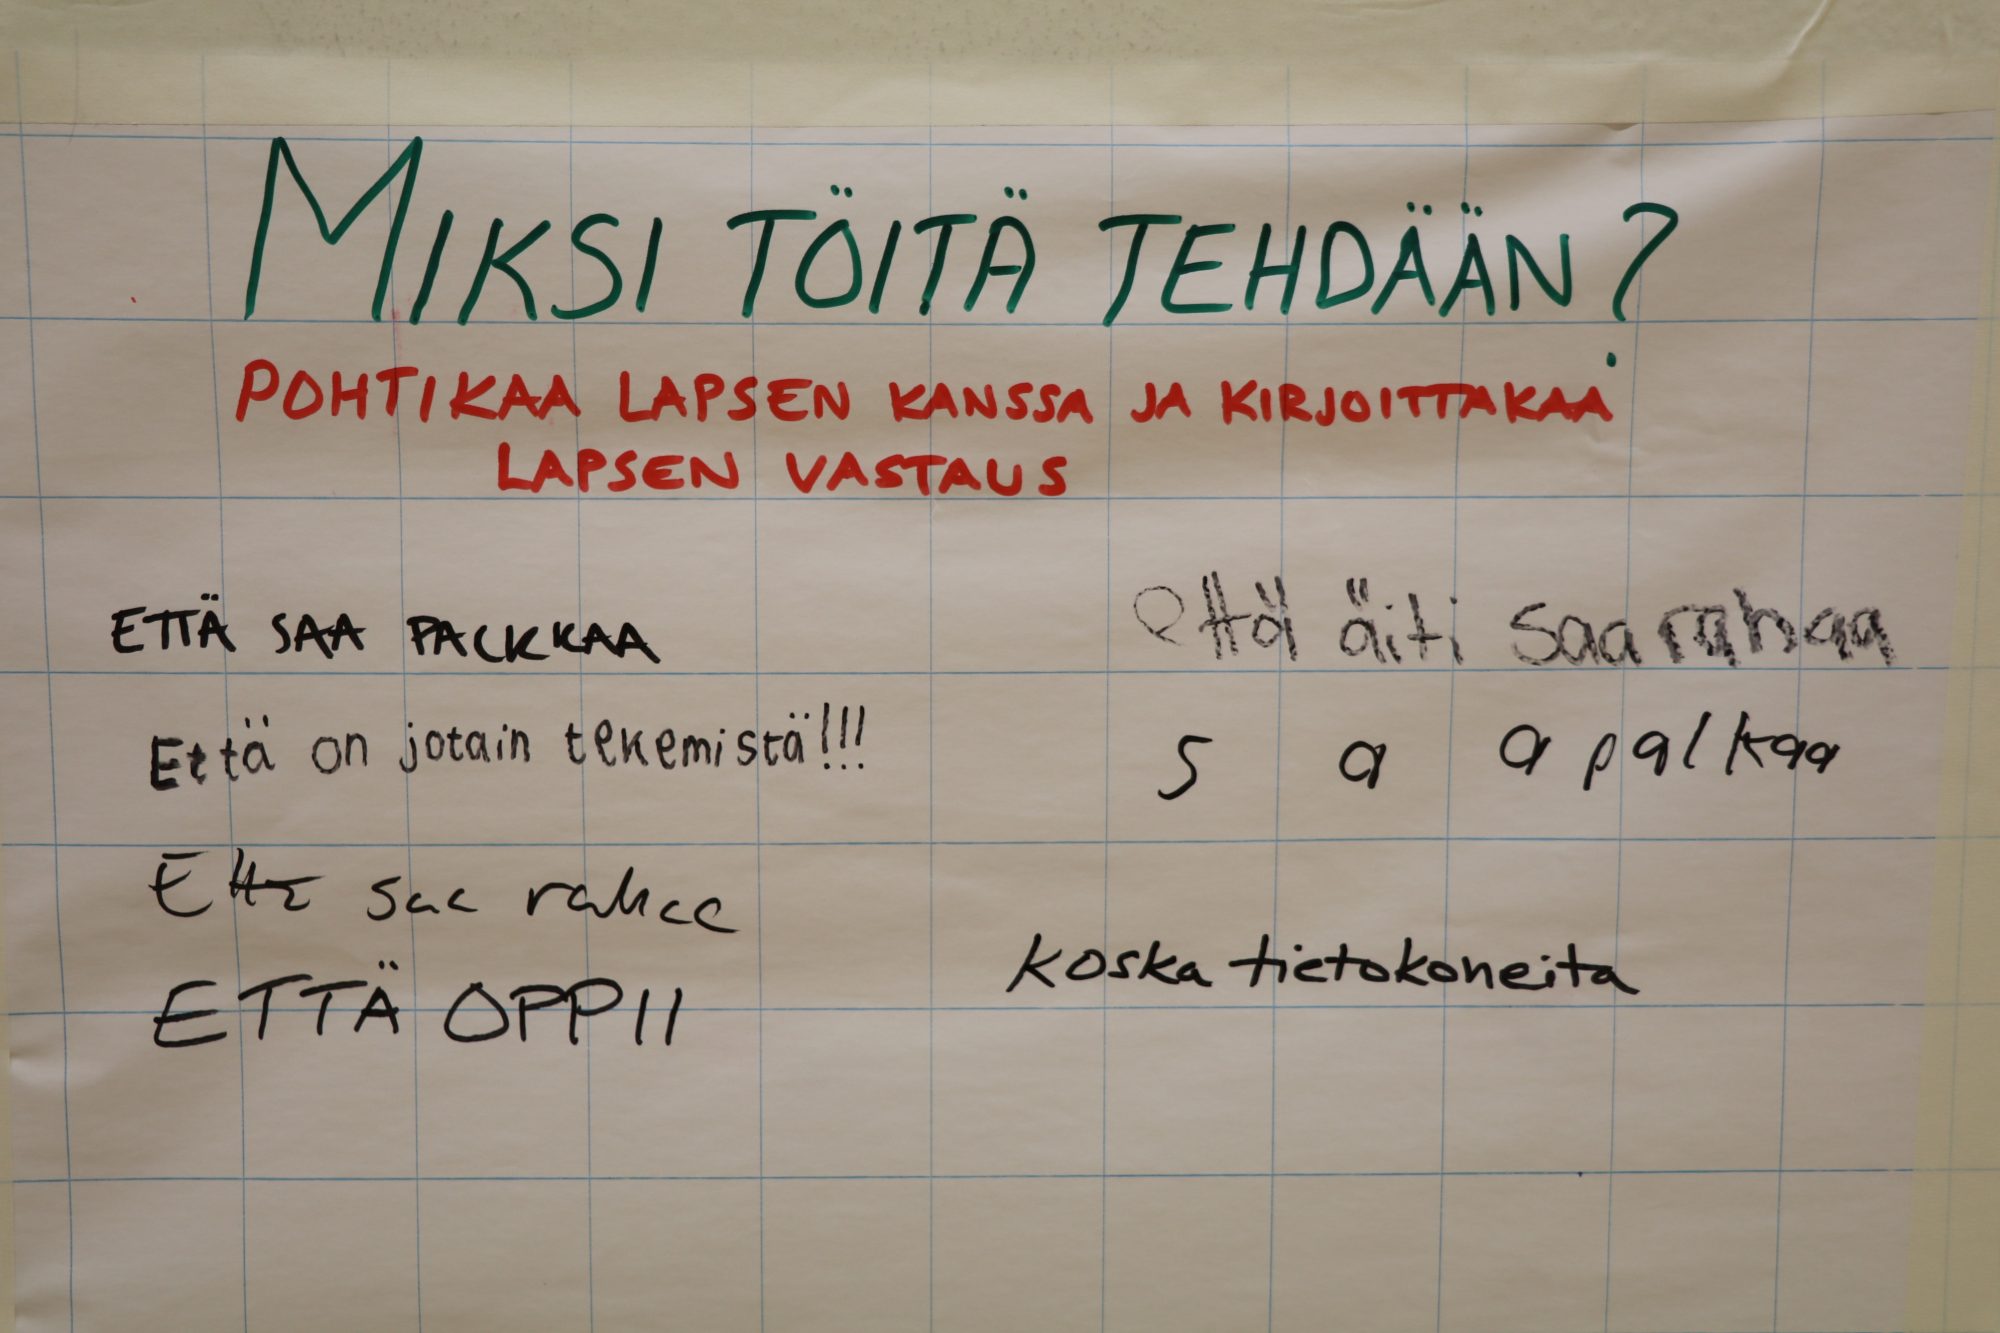 MIKSI TÖITÄ TEHDÄÄN?
POHTIKAA LAPSEN KANSSA JA KIRJOITTAKAA
LAPSEN VASTAUS
ETTÄ SAA PALKKAA
Että on jotain tekemistä!!!
Että saa rahaa
ETTÄ OPPII
että äiti saa rahaa
saa palkaa
koska tietokoneita